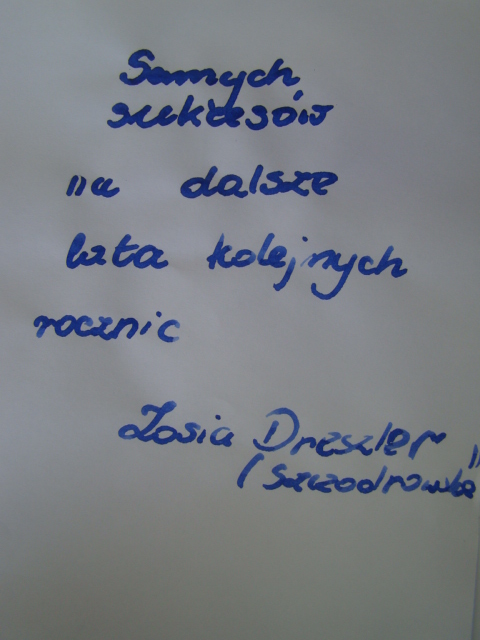 Samych
sukcesów
na dalsze
lata kolejnych
rocznic
Zosia Dreszler
/ Szczodrowska "